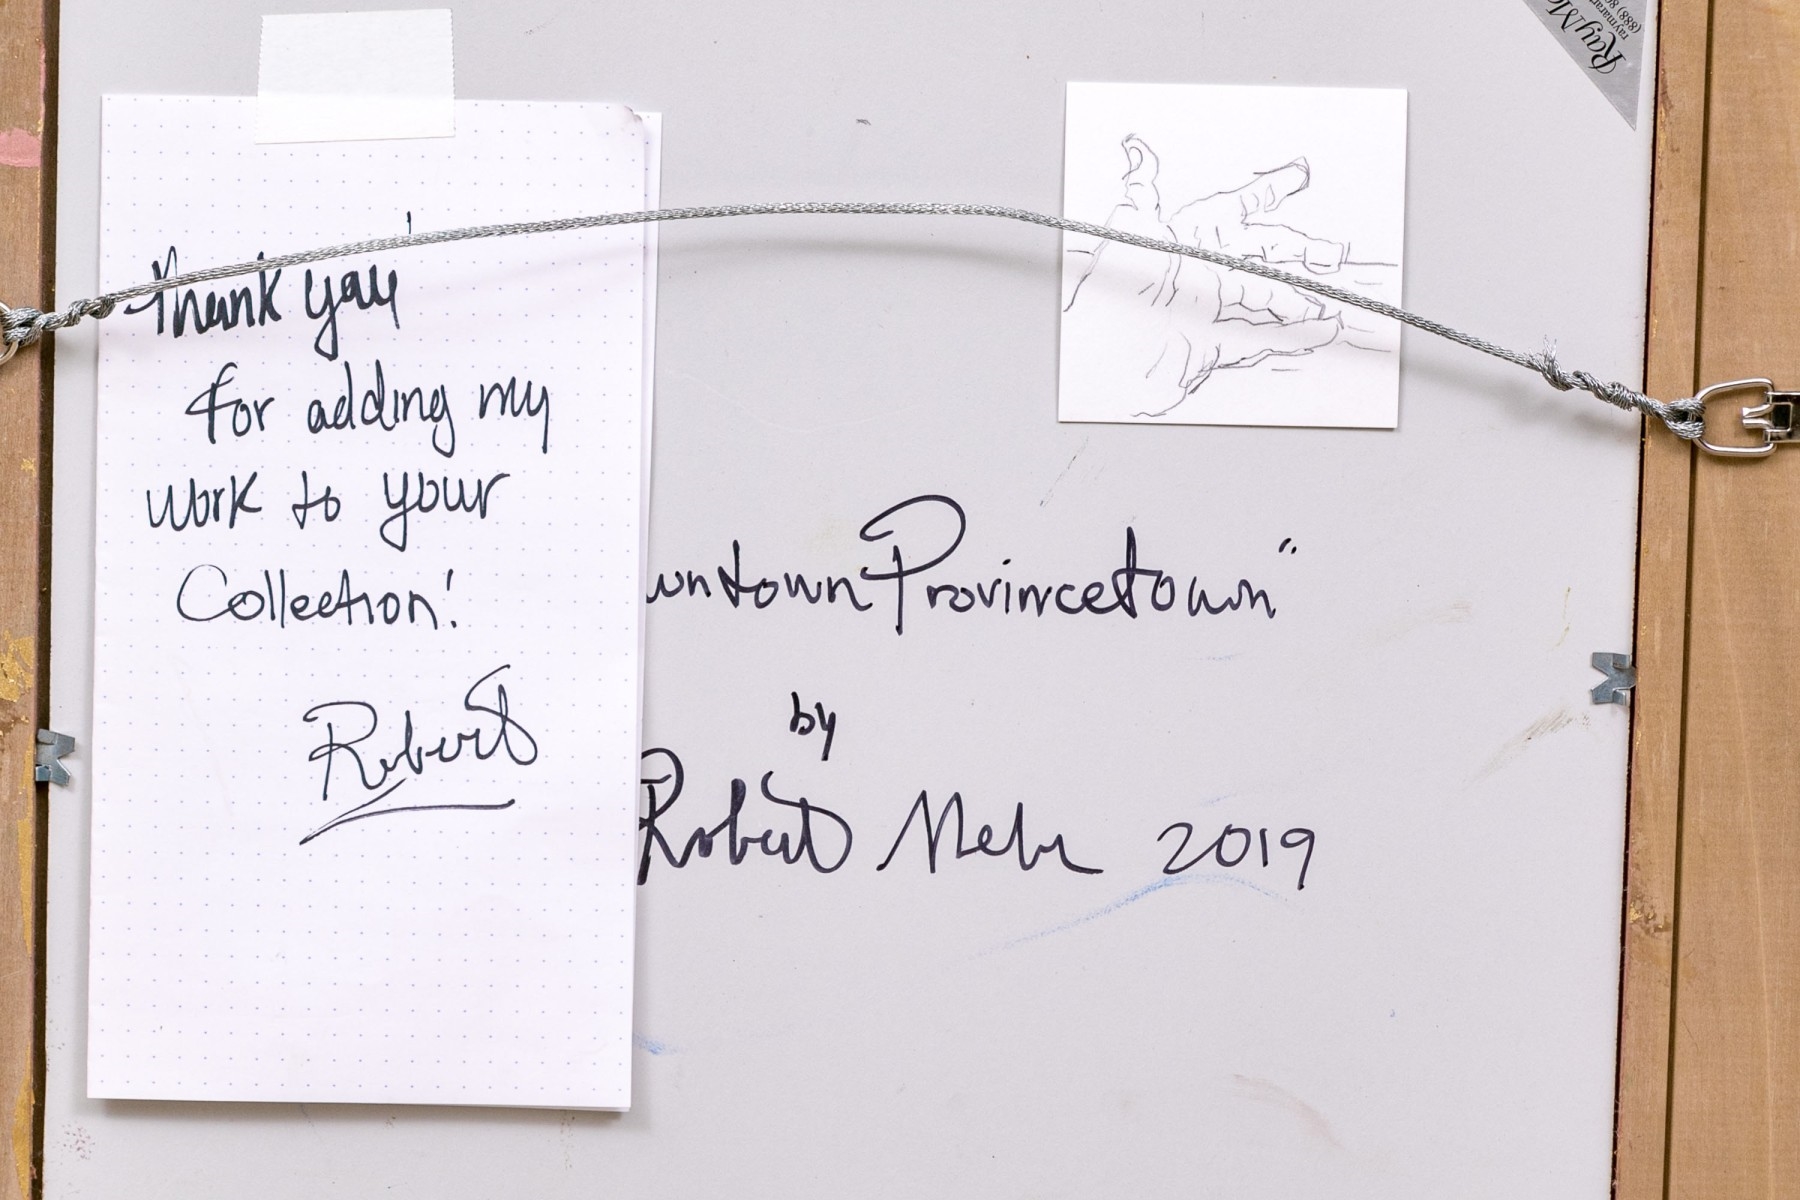 Thank you
for adding my
work to your
Collection!
Robert
wntown Provincetown"
by
Robert 2019
Ray
(888)